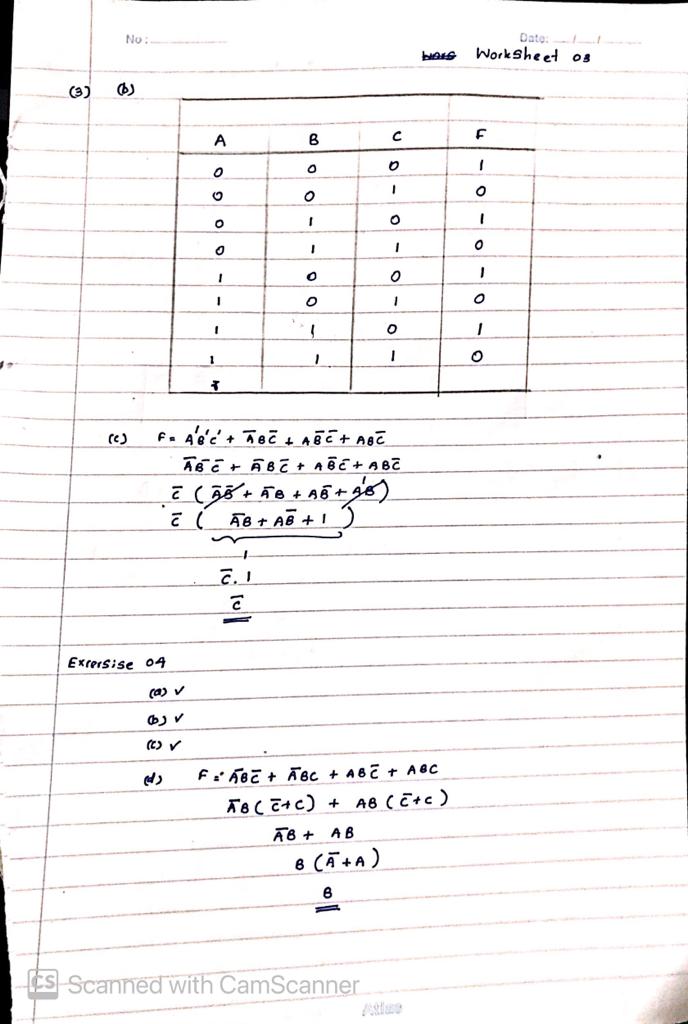 No: Date: / /
WorkSheet 03
(3) (b)
A B C F
0 0 0 1
0 0 1 0
0 1 0 1
0 1 1 0
1 0 0 1
1 0 1 0
1 1 0 1
1 1 1 0
(c) F = A'B'C' + A̅BC̅ + AB̅C̅ + ABC̅
A̅B̅C̅ + A̅BC̅ + AB̅C̅ + ABC̅
C̅ ( A̅B̅ + A̅B + AB̅ + AB )
1
C̅ ( A̅B + AB̅ + 1 )
1
C̅ . 1
C̅
Excersise 04
(a) ✓
(b) ✓
(c) ✓
(d) F = A̅BC̅ + A̅BC + ABC̅ + ABC
A̅B ( C̅+C ) + AB ( C̅+C )
A̅B + AB
B ( A̅ + A )
B
CS Scanned with CamScanner
Atlas